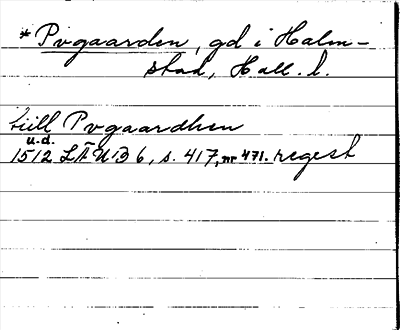 *Pvgaarden, gd i Halm-
stad, Hall. l.
till Pvgaardhen
u.d.
1512 LÄUB 6, s. 417, nr 471. regest